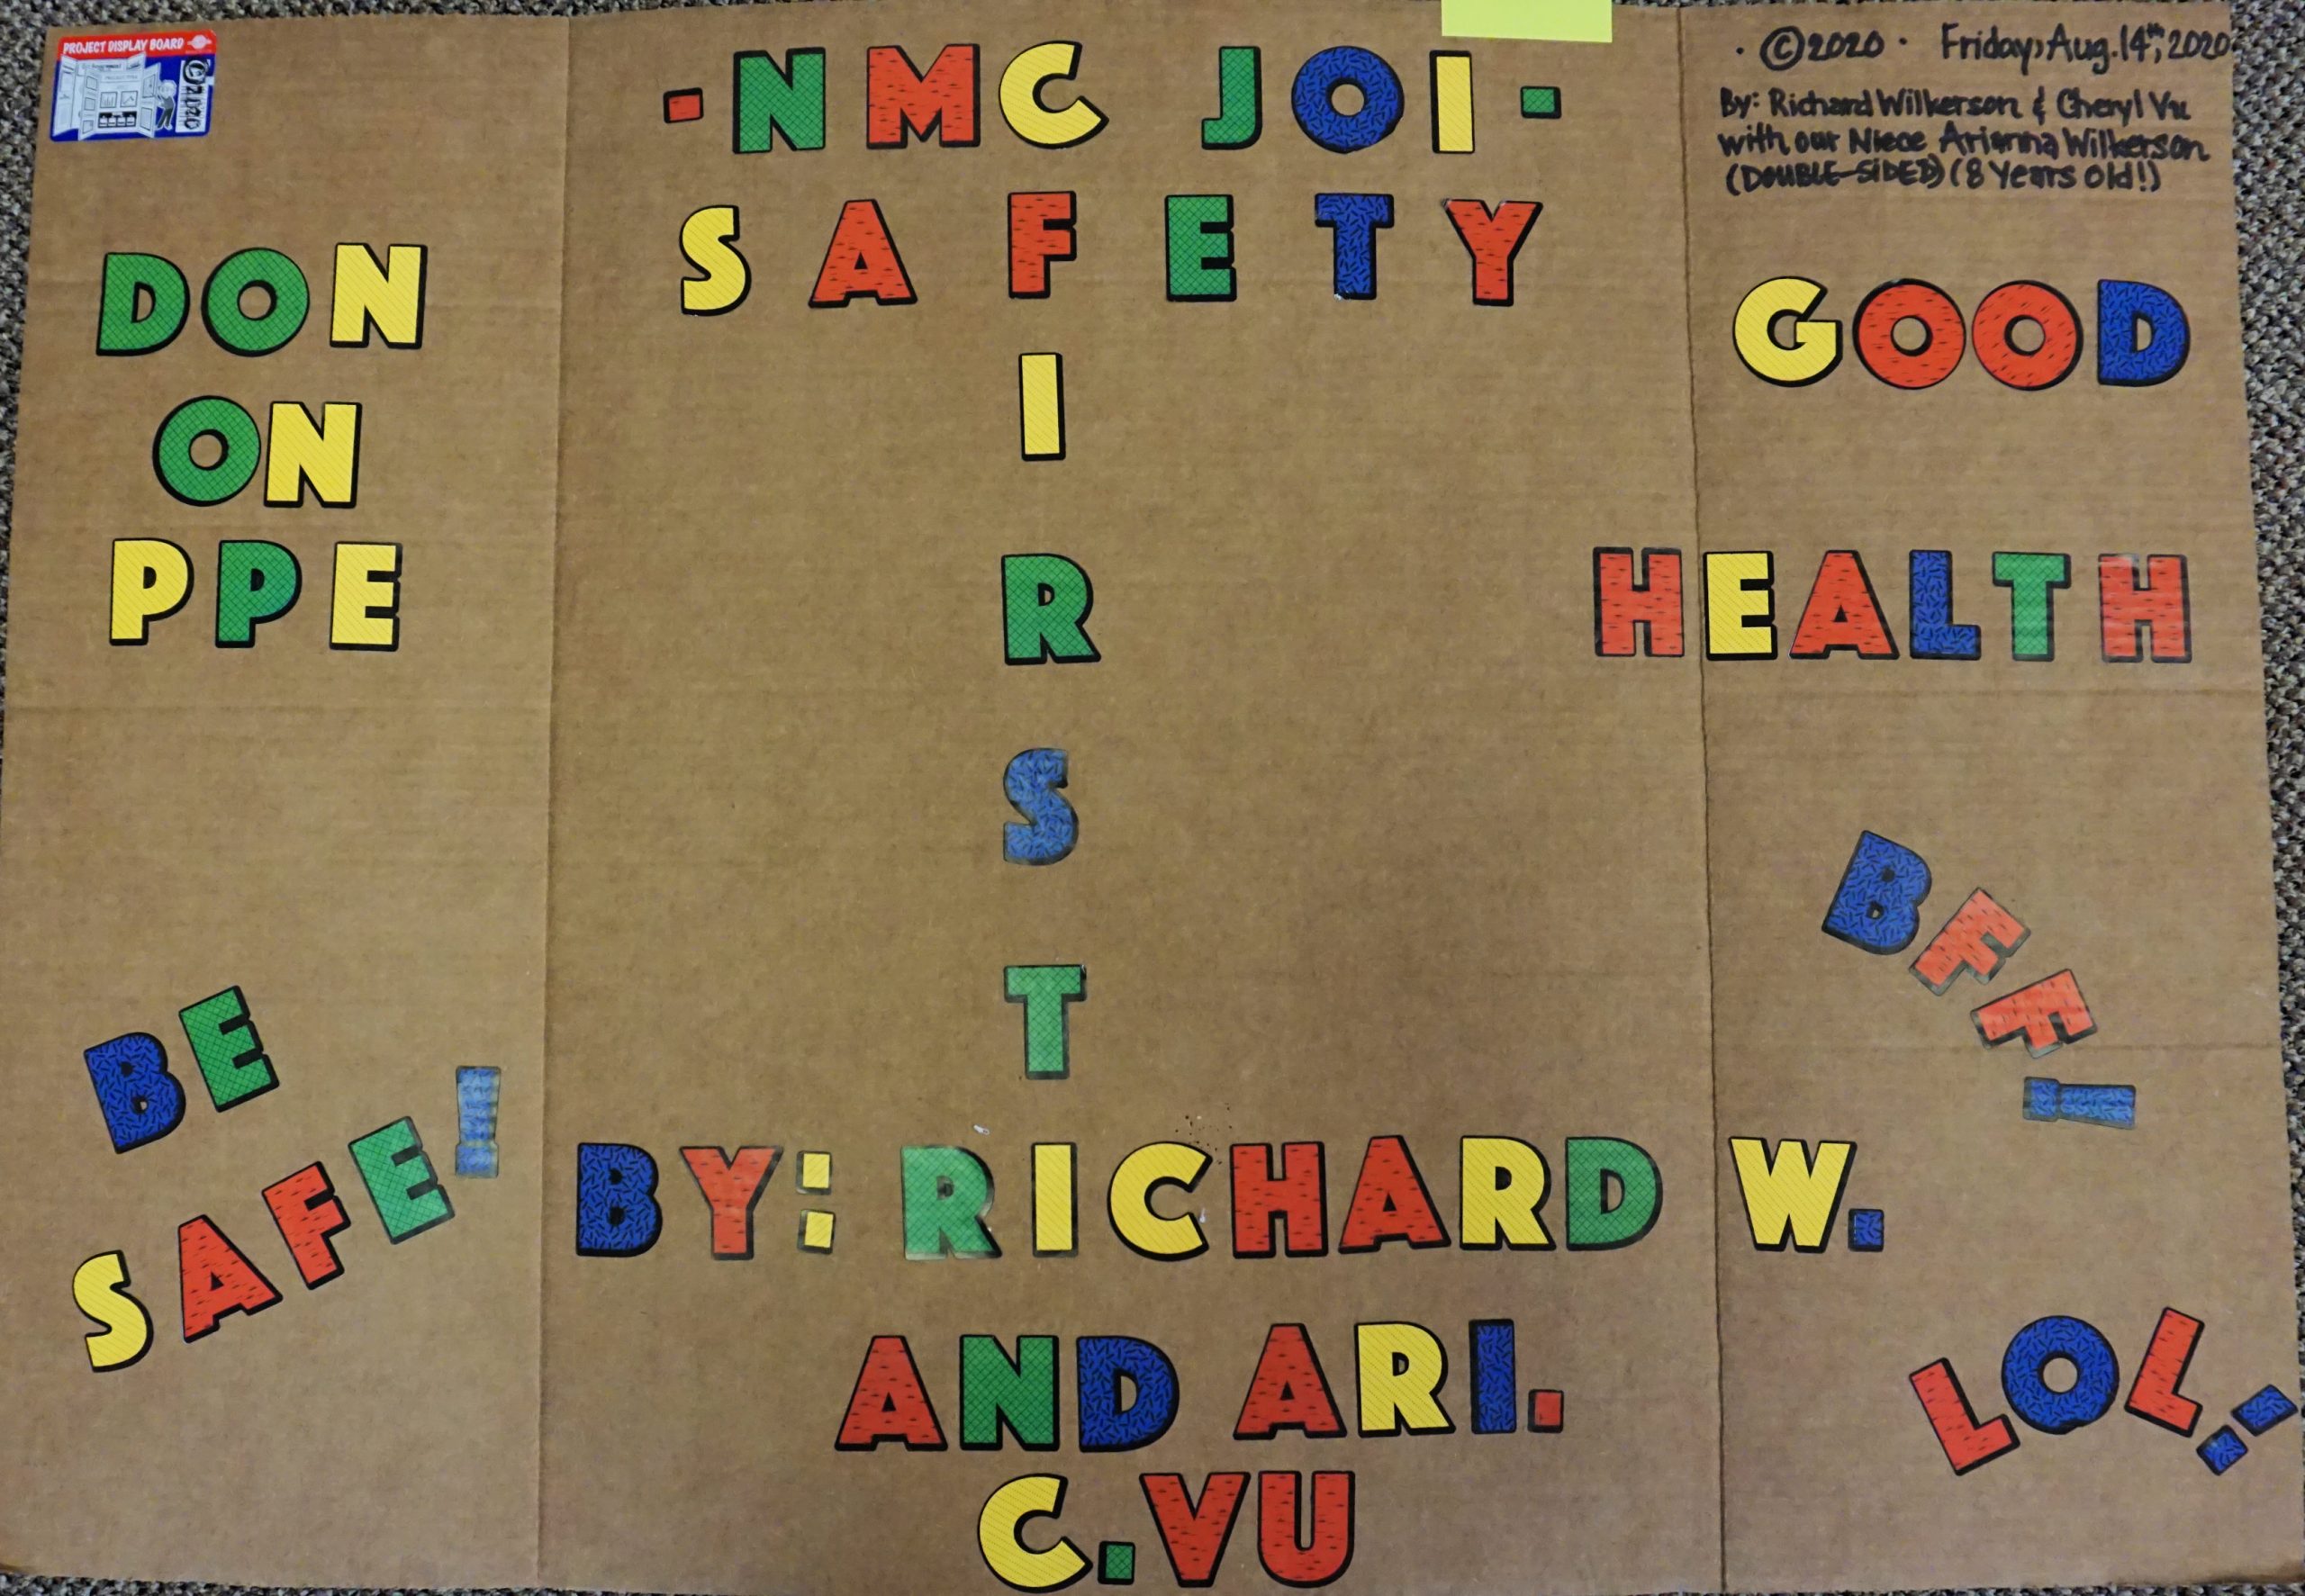 PROJECT DISPLAY BOARD
©2020
-NMC JOI-
SAFETY
F
I
R
S
T
· ©2020 · Friday, Aug. 14th, 2020
By: Richard Wilkerson & Cheryl Vu
with our Niece Arianna Wilkerson
(DOUBLE-SIDED) (8 Years Old!)
DON
ON
PPE
GOOD
HEALTH
BE
SAFE!
BFF!
BY: RICHARD W.
AND ARI.
C.VU
LOL: